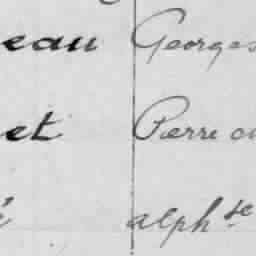 eau Georges
et Pierre
é alph.se